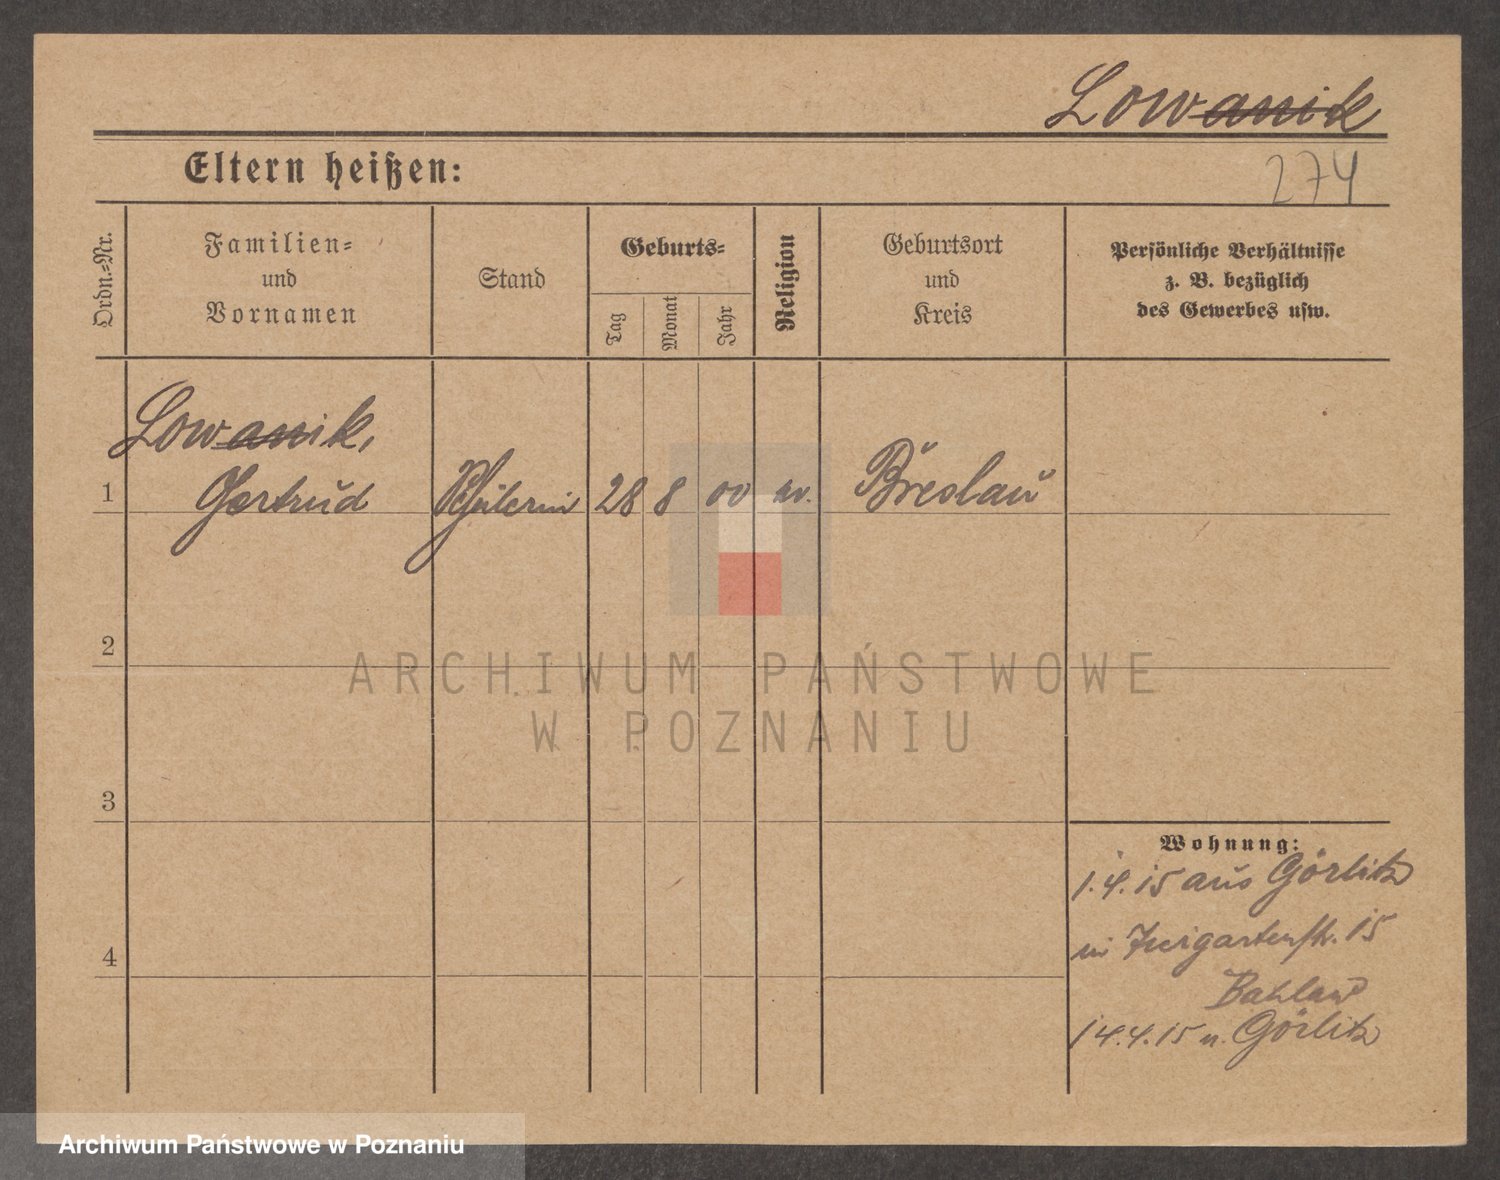 Lowanik
Eltern heißen:
274
Ordn.-Nr.
Familien-
und
Vornamen
Stand
Geburts-
Tag
Monat
Jahr
Religion
Geburtsort
und
Kreis
Persönliche Verhältnisse
z. B. bezüglich
des Gewerbes usw.
Lowanik,
1 Gertrud Schülerin 28 8 00 ev. Breslau
2
ARCHIWUM PAŃSTWOWE
W POZNANIU
3
Wohnung:
1.4.15 aus Görlitz
in Tiergartenstr. 15
4
14.4.15 n. Görlitz
Archiwum Państwowe w Poznaniu